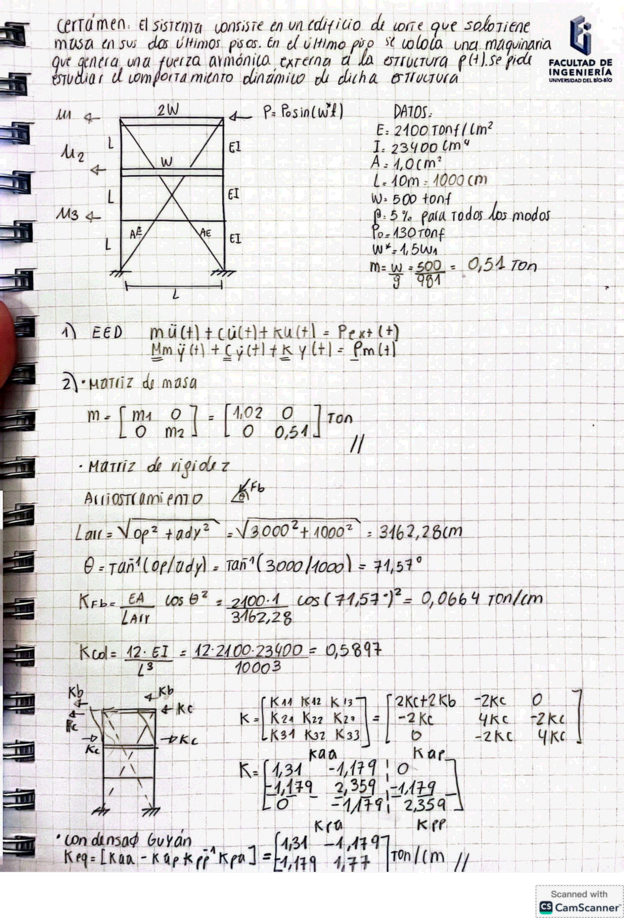 certamen: El sistema consiste en un edificio de corte que solo tiene
masa en sus dos últimos pisos. En el último piso se coloca una maquinaria
que genera una fuerza armónica externa a la estructura p(t). se pide
estudiar el comportamiento dinámico de dicha estructura
FACULTAD DE
INGENIERÍA
UNIVERSIDAD DEL BÍO-BÍO
M1
2W
P= Po sin(w*t)
M2
L
W
EI
M3
L
EI
L
AE
AE
EI
L
DATOS:
E: 2100 Tonf/cm²
I: 23400 cm⁴
A: 1,0 cm²
L: 10m = 1000 cm
W: 500 tonf
β: 5% para todos los modos
Po=130 Tonf
W*=1,5W1
m= w/g = 500/981 = 0,51 Ton
1) EED mü(t) + cu̇(t) + ku(t) = Pext(t)
Mm ÿ(t) + C ẏ(t) + K y(t) = Pm(t)
2) • Matriz de masa
m = [m1 0; 0 m2] = [1,02 0; 0 0,51] Ton //
• Matriz de rigidez
Arriostramiento Fb
Larr = √op² + ady² = √3000² + 1000² = 3162,28cm
θ = Tan⁻¹(op/ady) = Tan⁻¹(3000/1000) = 71,57°
KFb = EA/Larr cos θ² = 2100·1/3162,28 cos(71,57°)² = 0,0664 Ton/cm
Kcol = 12·EI/L³ = 12·2100·23400/1000³ = 0,5897
Kb
Kb
Kc
Fc
Kc
Kc
K = [K11 K12 K13; K21 K22 K23; K31 K32 K33] = [2Kc+2Kb -2Kc 0; -2Kc 4Kc -2Kc; 0 -2Kc 4Kc]
Kaa Kap
K = [1,31 -1,179 0; -1,179 2,359 -1,179; 0 -1,179 2,359]
Kpa Kpp
• Condensad Guyán
Keq = [Kaa - Kap Kpp⁻¹ Kpa] = [1,31 -1,179; -1,179 1,77] Ton/cm //
Scanned with
CS CamScanner